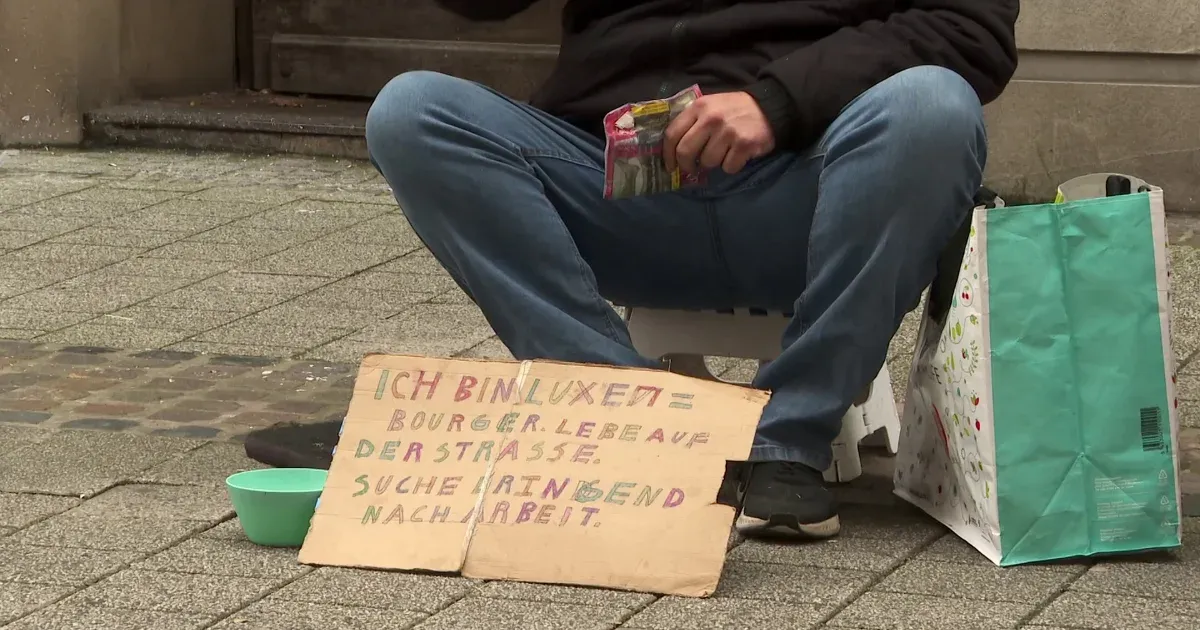 ICH BIN LUXEM=
BOURGER. LEBE AUF
DER STRASSE.
SUCHE DRINGEND
NACH ARBEIT.